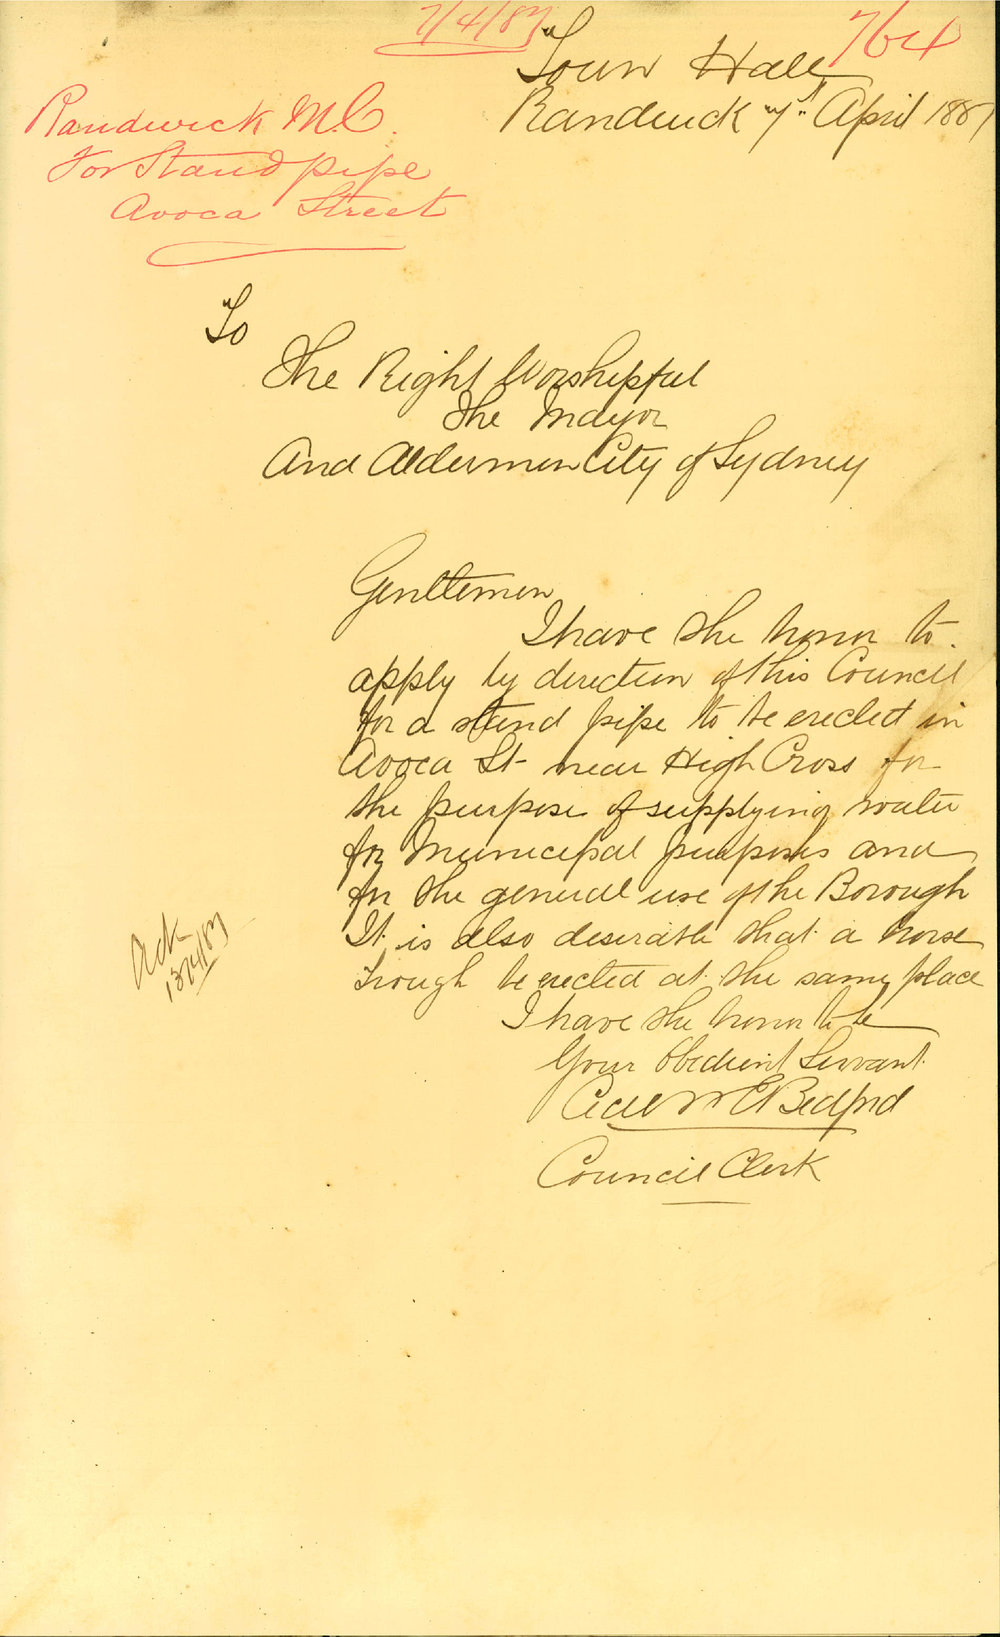 7/4/87
764
Town Hall
Randwick 7th April 1887
Randwick M.C.
For Stand pipe
Avoca Street
To
The Right Worshipful
The Mayor
And Aldermen City of Sydney
Gentlemen
I have the honor to
apply by direction of this Council
for a stand pipe to be erected in
Avoca St near High Cross for
the purpose of supplying water
for Municipal purposes and
for the general use of the Borough
It is also desirable that a horse
trough be erected at the same place
I have the honor to be
Your Obedient Servant
Bedford
Council Clerk
Ack
13/4/87